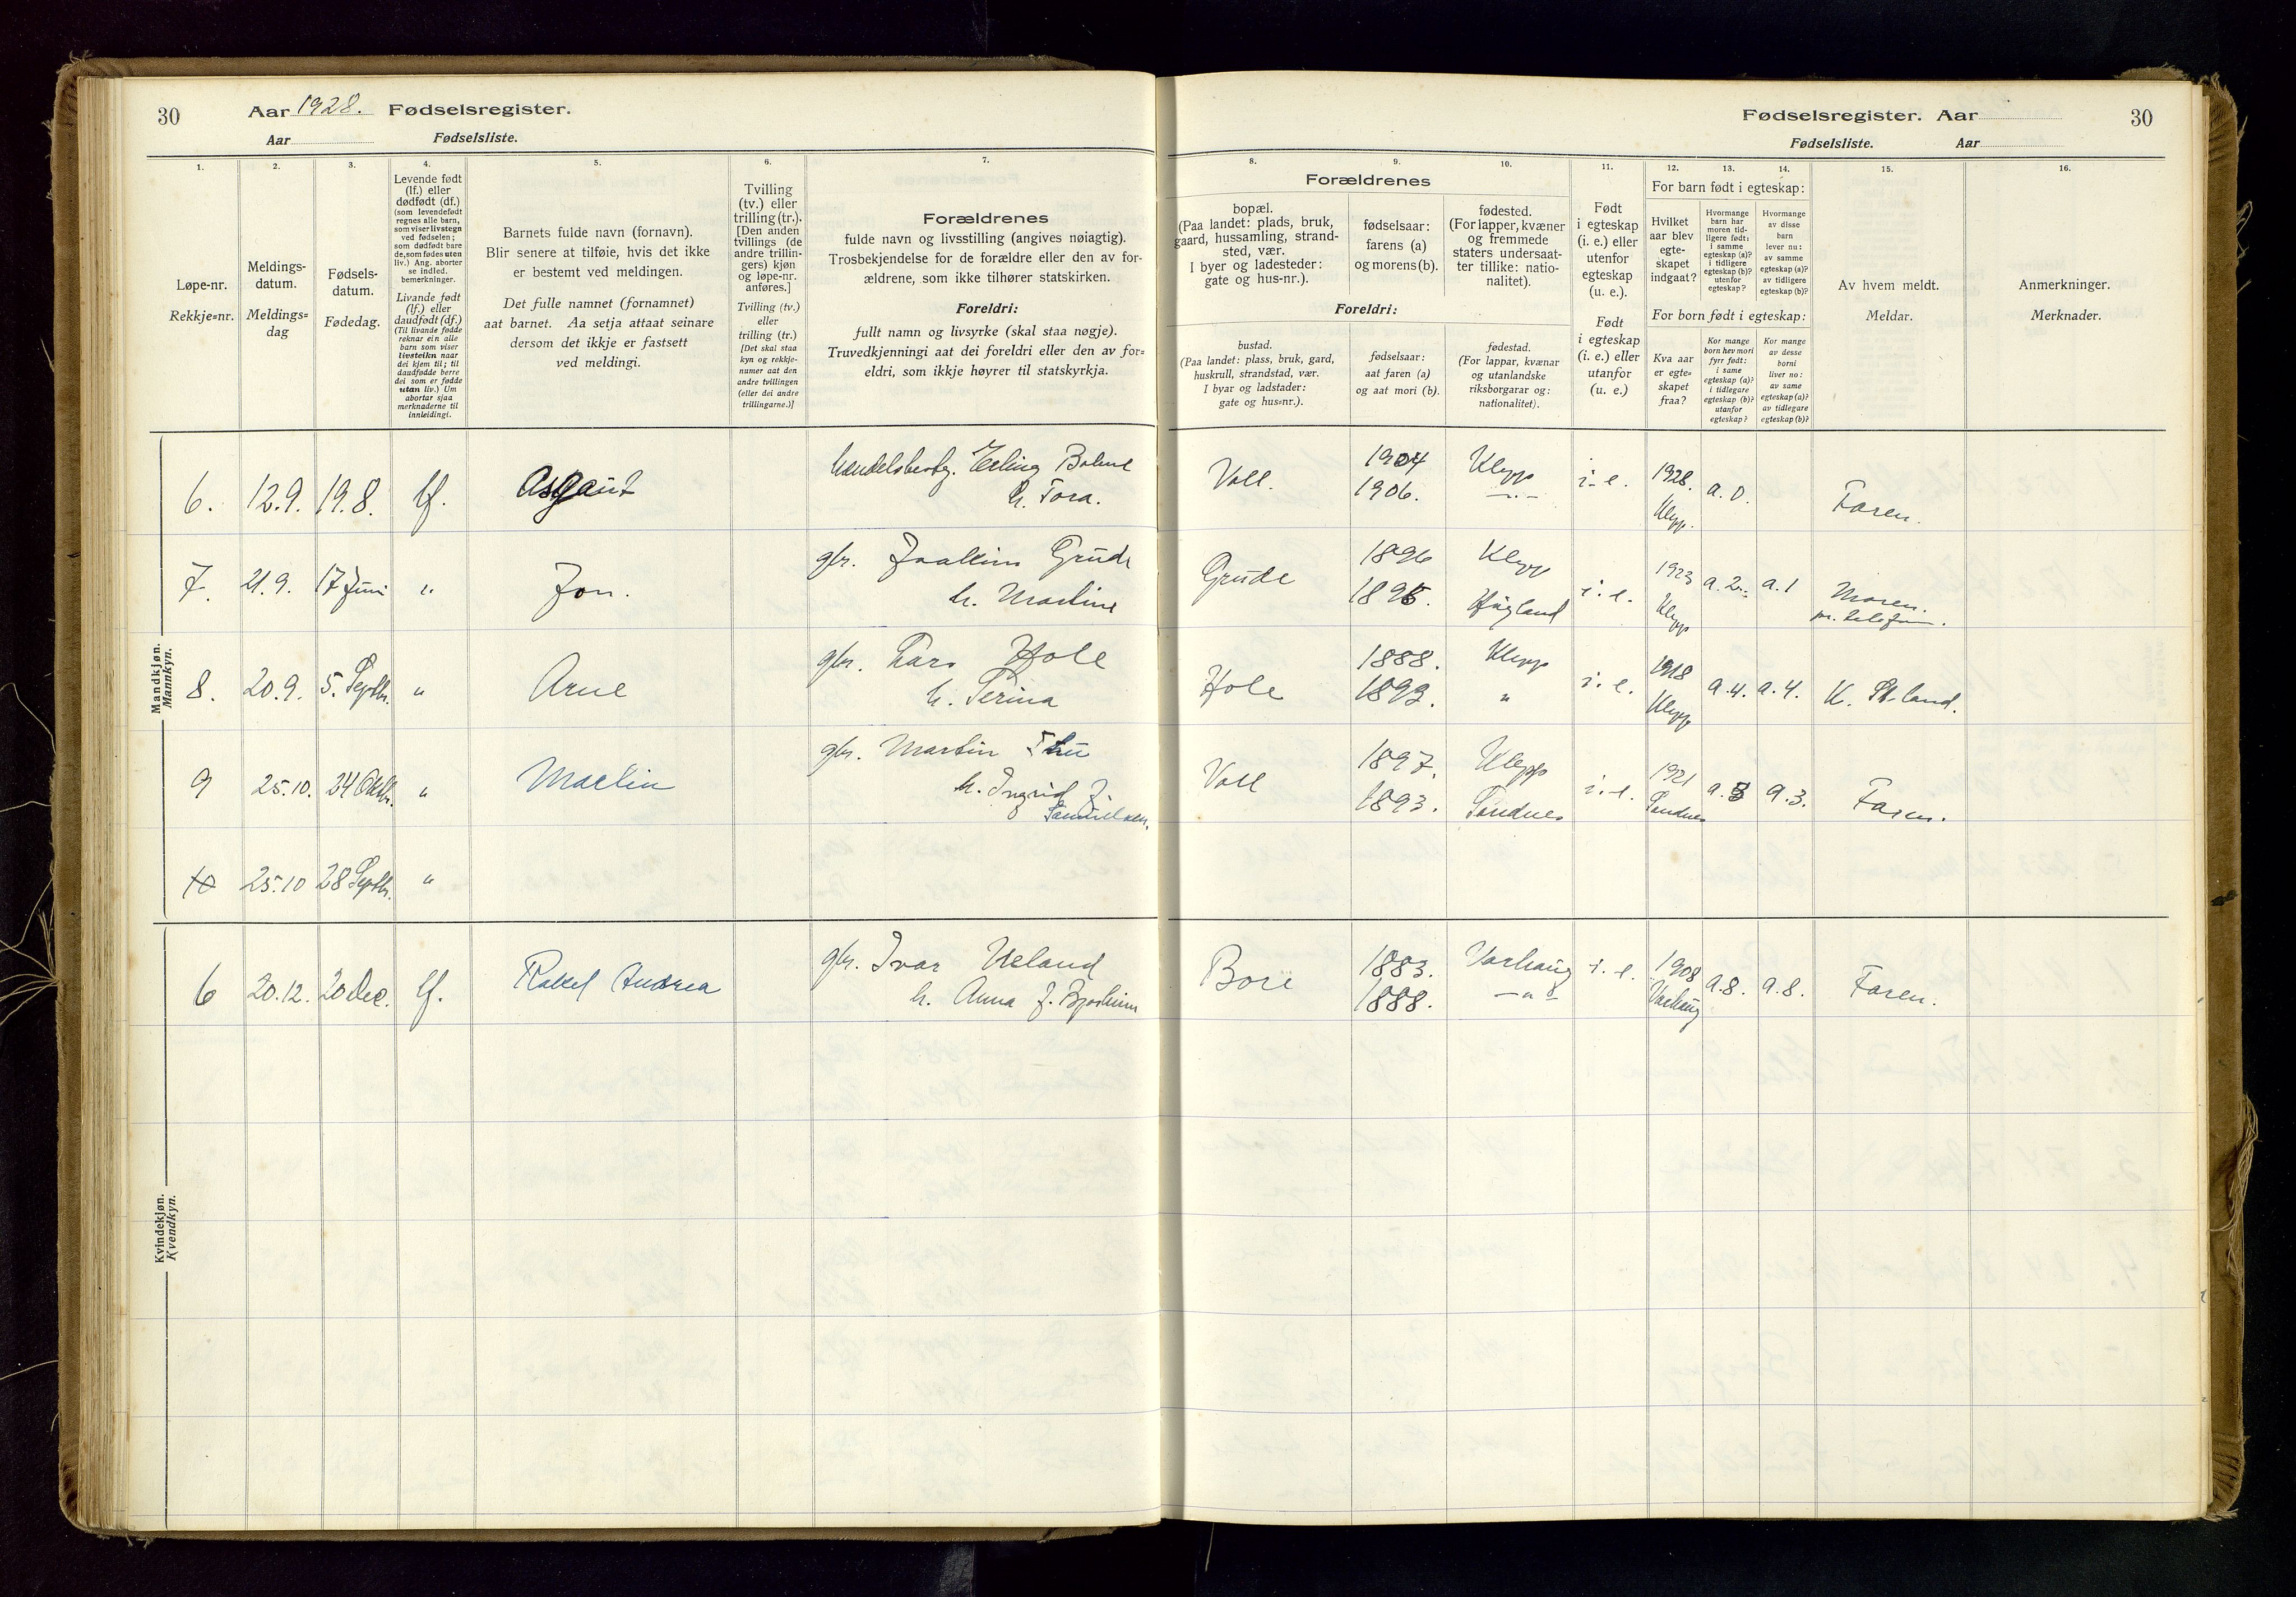 30
Aar 1928. Fødselsregister.
Aar Fødselsliste.
Fødselsregister. Aar
30
Fødselsliste. Aar
1.
Løpe-nr.
Rekkje=nr.
2.
Meldings-
datum.
Meldings=
dag
3.
Fødsels-
datum.
Fødedag.
4.
Levende født
(lf.) eller
dødfødt (df.)
(som levendefødt
regnes alle barn,
som viser livstegn
ved fødselen;
som dødfødt bare
de, som fødes uten
liv.) Ang. aborter
se indled.
bemerkninger.
Livande født
(lf.) eller
daudfødt (df.)
(Til livande fødde
reknar ein alle
barn som viser
livsteikn naar
dei kjem til; til
daudfødde berre
dei som er fødde
utan liv.) Um
abortar sjaa
merknaderne til
innleidingi.
5.
Barnets fulde navn (fornavn).
Blir senere at tilføie, hvis det ikke
er bestemt ved meldingen.
Det fulle namnet (fornamnet)
aat barnet. Aa setja attaat seinare
dersom det ikkje er fastsett
ved meldingi.
6.
Tvilling
(tv.) eller
trilling (tr.).
[Den anden
tvillings (de
andre trillin-
gers) kjøn
og løpe-nr.
anføres.]
Tvilling (tv.)
eller
trilling (tr.)
[Det skal staa
kyn og rekkje-
numer aat den
andre tvillingen
(eller dei andre
trillingarne.)]
7.
Forældrenes
fulde navn og livsstilling (angives nøiagtig).
Trosbekjendelse for de forældre eller den av for-
ældrene, som ikke tilhører statskirken.
Foreldri:
fullt namn og livsyrke (skal staa nøgje).
Truvedkjenningi aat dei foreldri eller den av for=
eldri, som ikkje høyrer til statskyrkja.
Forældrenes
8.
bopæl.
(Paa landet: plads, bruk,
gaard, hussamling, strand-
sted, vær.
I byer og ladesteder:
gate og hus-nr.).
9.
fødselsaar:
farens (a)
og morens (b).
10.
fødested.
(For lapper, kvæner
og fremmede
staters undersaat-
ter tillike: natio-
nalitet).
Foreldri:
bustad.
(Paa landet: plass, bruk, gard,
huskrull, strandstad, vær.
I byar og ladstader:
gate og hus=nr.).
fødselsaar:
aat faren (a)
og aat mori (b).
fødestad.
(For lappar, kvænar
og utanlandske
riksborgarar og:
nationalitet).
11.
Født
i egteskap
(i. e.) eller
utenfor
egteskap
(u. e.).
Født
i egteskap
(i. e.) eller
utanfor
(u. e.)
For barn født i egteskap:
12.
Hvilket
aar blev
egte-
skapet
indgaat?
13.
Hvormange
barn har
moren tid-
ligere født:
i samme
egteskap (a)?
i tidligere
egteskap (b)?
utenfor
egteskap?
14.
Hvormange
av disse
barn
lever nu:
av samme
egteskap (a)?
av tidligere
egteskap (b)?
For born født i egteskap:
Kva aar
er egte=
skapet
fraa?
Kor mange
born hev mori
fyrr født:
i same
egteskap (a)?
i tidlegare
egteskap (b)?
utanfor
egteskap?
Kor mange
av desse
borni
liver no:
av same
egteskap (a)?
av tidlegare
egteskap (b)?
15.
Av hvem meldt.
Meldar.
16.
Anmerkninger.
Merknader.
Mandkjøn.
Mannkyn.
6. 12.9. 19.8. lf. Asgaut Erling h. Tora. Voll. 1904 1906. Klepp —"— i. e. 1928. Klepp. a. 0. Faren.
7. 21.9. 17 Juni " Jon. gbr. Joakim Grude h. Martine Grude 1896 Klepp i. e. 1923 Klepp a. 2. a. 1 Moren. pr. telefon.
8. 20.9. 5. Septbr. " Arne gbr. Lars Hole h. Serina Hole 1888. 1893. Klepp " i. e. 1918 Klepp a. 4. a. 4. K.
9 25.10. 24 Oktbr. " Martin gbr. Martin Thu h. Ingrid f. Samuelsen. Voll 1897. 1893. Klepp Sandnes i. e. 1921 Sandnes a. 3 a. 3. Faren.
10 25.10 28 Septbr. "
Kvindekjøn.
Kvendkyn.
6 20.12. 20 Dec. lf. Rakel Andrea gbr. Ivar Ueland h. Anna f. Bjorheim Bore 1883. 1888. Varhaug —"— i. e. 1908 Varhaug a. 8. a. 8. Faren.